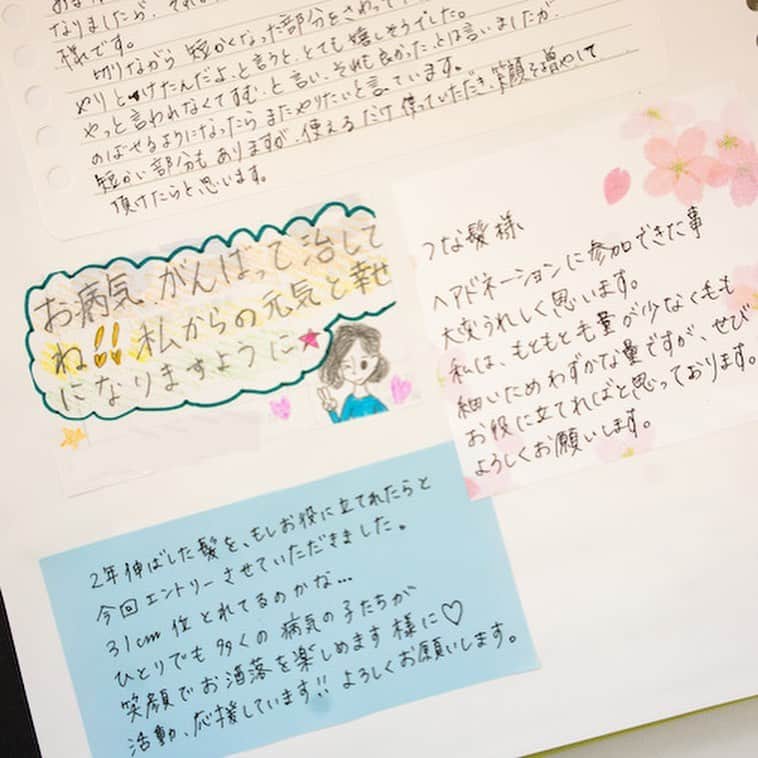 なりましたら、それが
様です。
切りながら 短かくなった部分をさわって
やりとげたんだよ、と言うと、とても嬉しそうでした。
やっと言われなくてすむ、と言い、それも良かった、とは言いましたが、
のばせるようになったら またやりたいと言っています。
短かい部分も ありますが、使えるだけ 使っていただき、笑顔を増やして
頂けたらと思います。
お病気 がんばって治して
ね!! 私からの元気と幸せ
になりますように★
つな髪様
ヘアドネーションに参加できた事
大変うれしく思います。
私は、もともと毛量が少なく毛も
細いため わずかな量ですが、ぜひ
お役に立てればと思っております。
よろしくお願いします。
2年伸ばした髪を、もしお役に立てれたらと
今回エントリーさせていただきました。
31cm 位 とれてるのかな…
ひとりでも 多くの 病気の子たちが
笑顔でお洒落を楽しめます様に♡
活動、応援しています!! よろしくお願いします。